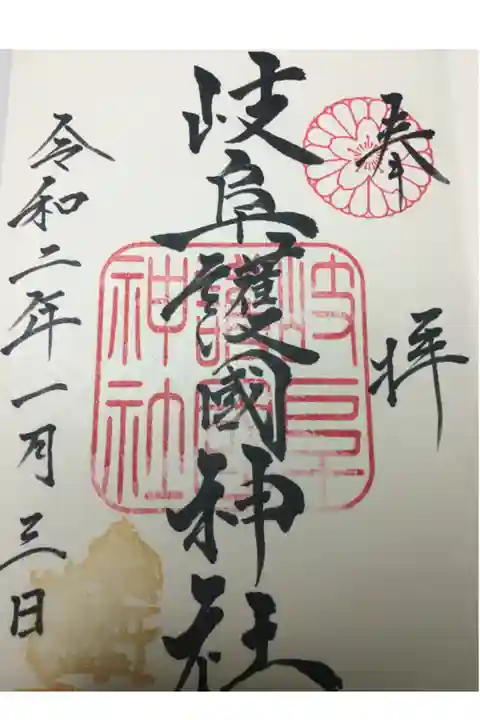 奉拝
岐阜護國神社
岐阜
護國
神社
令和二年一月三日